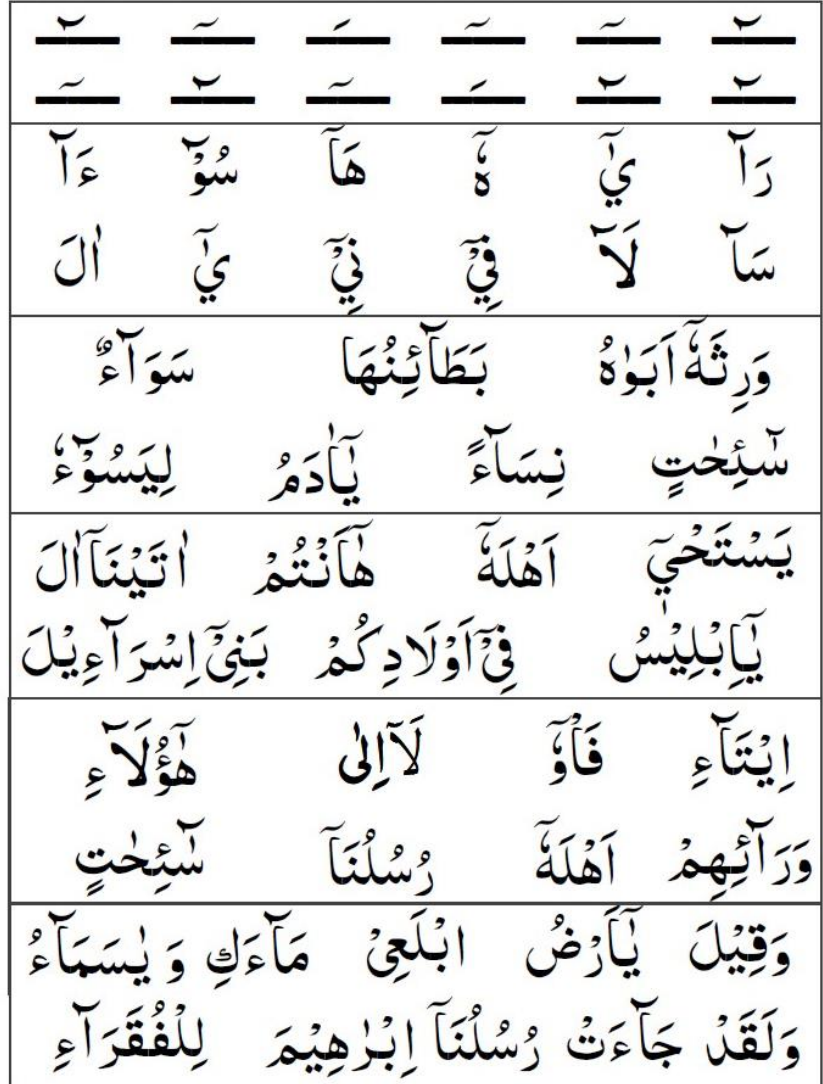 رَآ يٰٓ هٗٓ هَآ سُوْٓ ءَآ
سَآ لَآ فِيْٓ نِيْٓ يٰٓ اٰلَ
وَرِثَهٗٓ اَبَوٰهُ بَطَآئِنُهَا سَوَآءٌ
سٰٓئِحٰتٍ نِسَآءً يٰٓاٰدَمُ لِيَسُوْٓءٗ
يَسْتَحْيٖٓ اَهْلَهٗٓ هٰٓاَنْتُمْ اٰتَيْنَآ اٰلَ
يٰٓاِبْلِيْسُ فِيْٓ اَوْلَادِكُمْ بَنِيْٓ اِسْرَآءِيْلَ
اِيْتَآءِ فَاْوٗٓ لَآ اِلٰى هٰٓؤُلَآءِ
وَرَآئِهِمْ اَهْلَهٗٓ رُسُلُنَآ سٰٓئِحٰتٍ
وَقِيْلَ يٰٓاَرْضُ ابْلَعِيْ مَآءَكِ وَ يٰسَمَآءُ
وَلَقَدْ جَآءَتْ رُسُلُنَآ اِبْرٰهِيْمَ لِلْفُقَرَآءِ